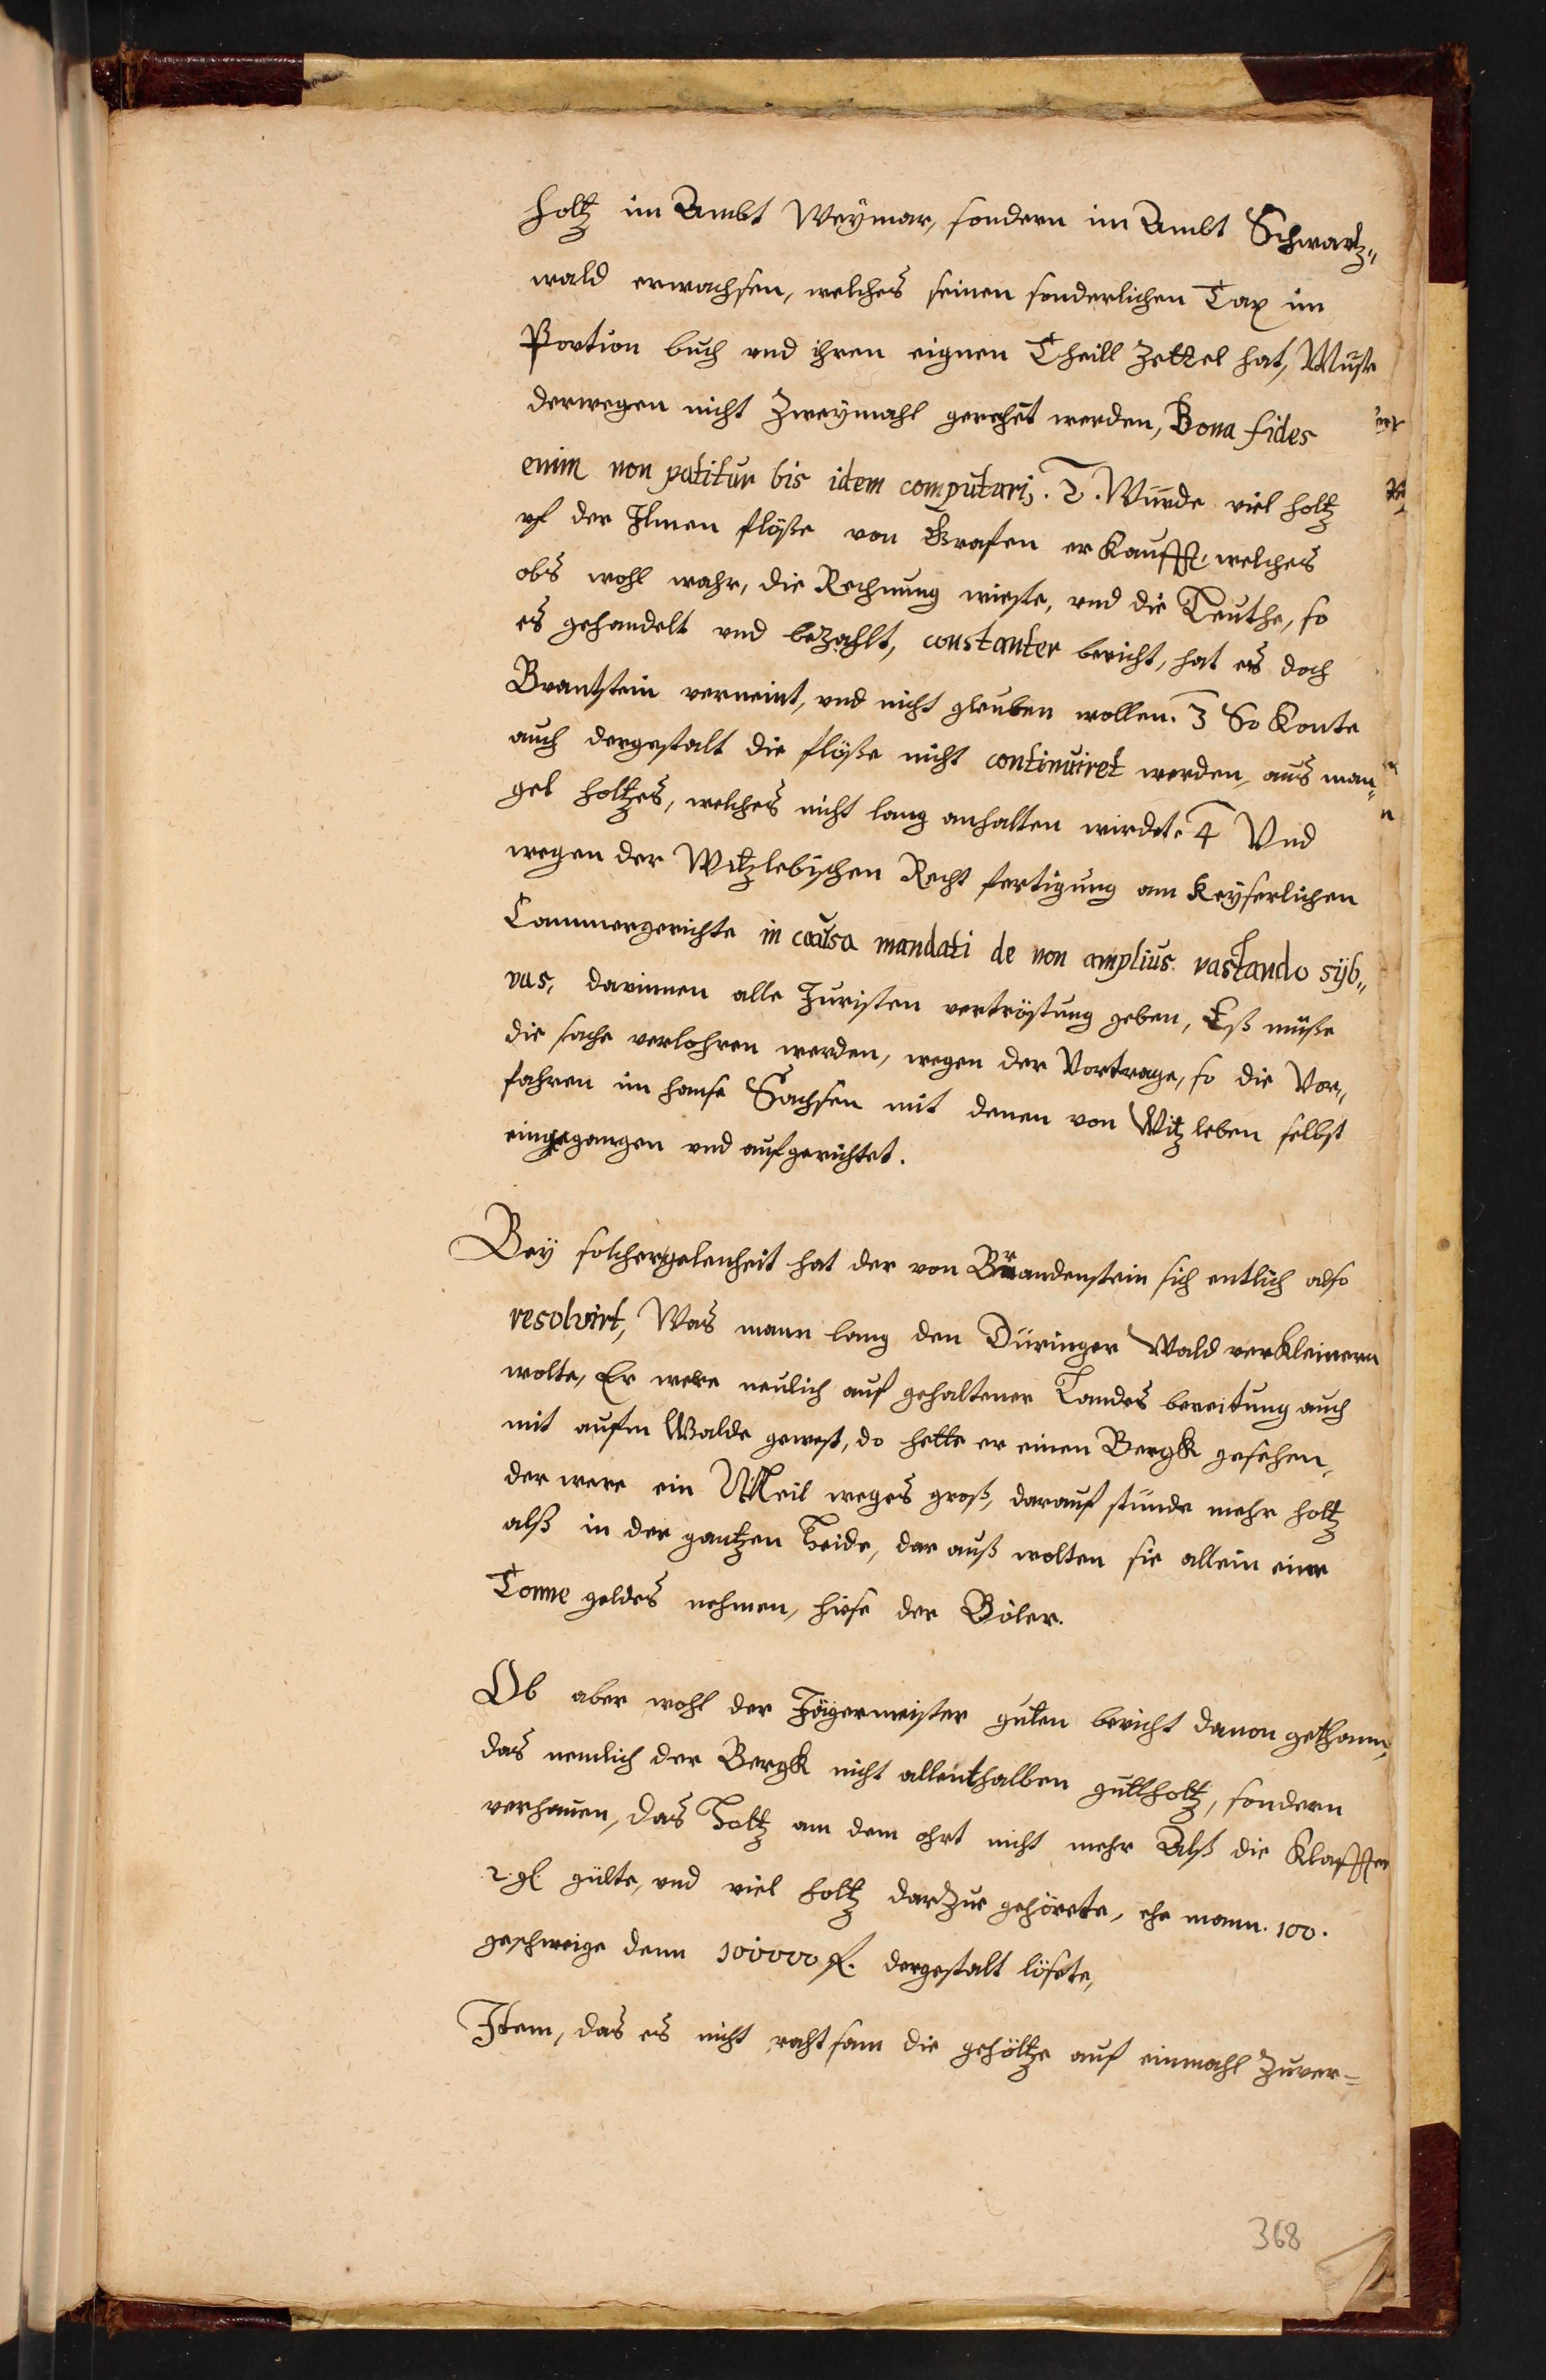 holtz im Ambt Weÿmar, sondern im Ambt Schwartz„
wald erwachsen, welches seinen sonderlichen Tax im
Portion buch vnd ihren eignen Theill Zettel hat, Muste
derwegen nicht Zweÿmahl gerechet werden, Bona fides
enim non patitur bis idem computari. 2. Würde viel holtz
vf der Ilmen flöße von Grafen erkaufft, welches
obs wohl wahr, die Rechnung wieße, vnd die Leuthe, so
es gehandelt vnd bezahlt, constanter bericht, hat es doch
Brantstein verneint, vnd nicht gleuben wollen. 3 So Konte
auch dergestalt die flöße nicht continuiret werden, aus man„
gel holtzes, welches nicht lang anhalten wirdet. 4 Vnd
wegen der Witzlebischen Recht fertigung am Keÿserlichen
Cammergerichte in causa mandati de non amplius vastando sÿl„
vas, darinnen alle Juristen vertröstung geben, Eß müße
die sache verlohren werden, wegen der Vortrage, so die Vor„
fahren im hause Sachsen mit denen von Witzleben selbst
eingegangen vnd aufgerichtet.
Beÿ solcher gelenheit hat der von Brandenstein sich entlich also
resolvirt, Was mann lang den Düringer Wald verkleinern
wolte, Er were neulich auf gehaltener Landes bereitung auch
mit aufm Walde gewest, do hette er einen Bergk gesehen,
der were ein Meil weges groß, darauf stünde mehr holtz
alß in der gantzen Heide, dar auß wolten sie allein eine
Tonne geldes nehmen, hiese der Böler.
Ob aber wohl der Jägermeister guten bericht dauon gethann,
das nemlich der Bergk nicht allenthalben guttholtz, sondern
verhauen, das Holtz am dem ohrt nicht mehr Alß die Klaffter
2 gl gülte, vnd viel holtz darzue gehörete, ehe mann 100.
geschweige denn 100000 fl. dergestalt lösete,
Item, das es nicht rahtsam die gehöltze auf einmahl Zuver=
368